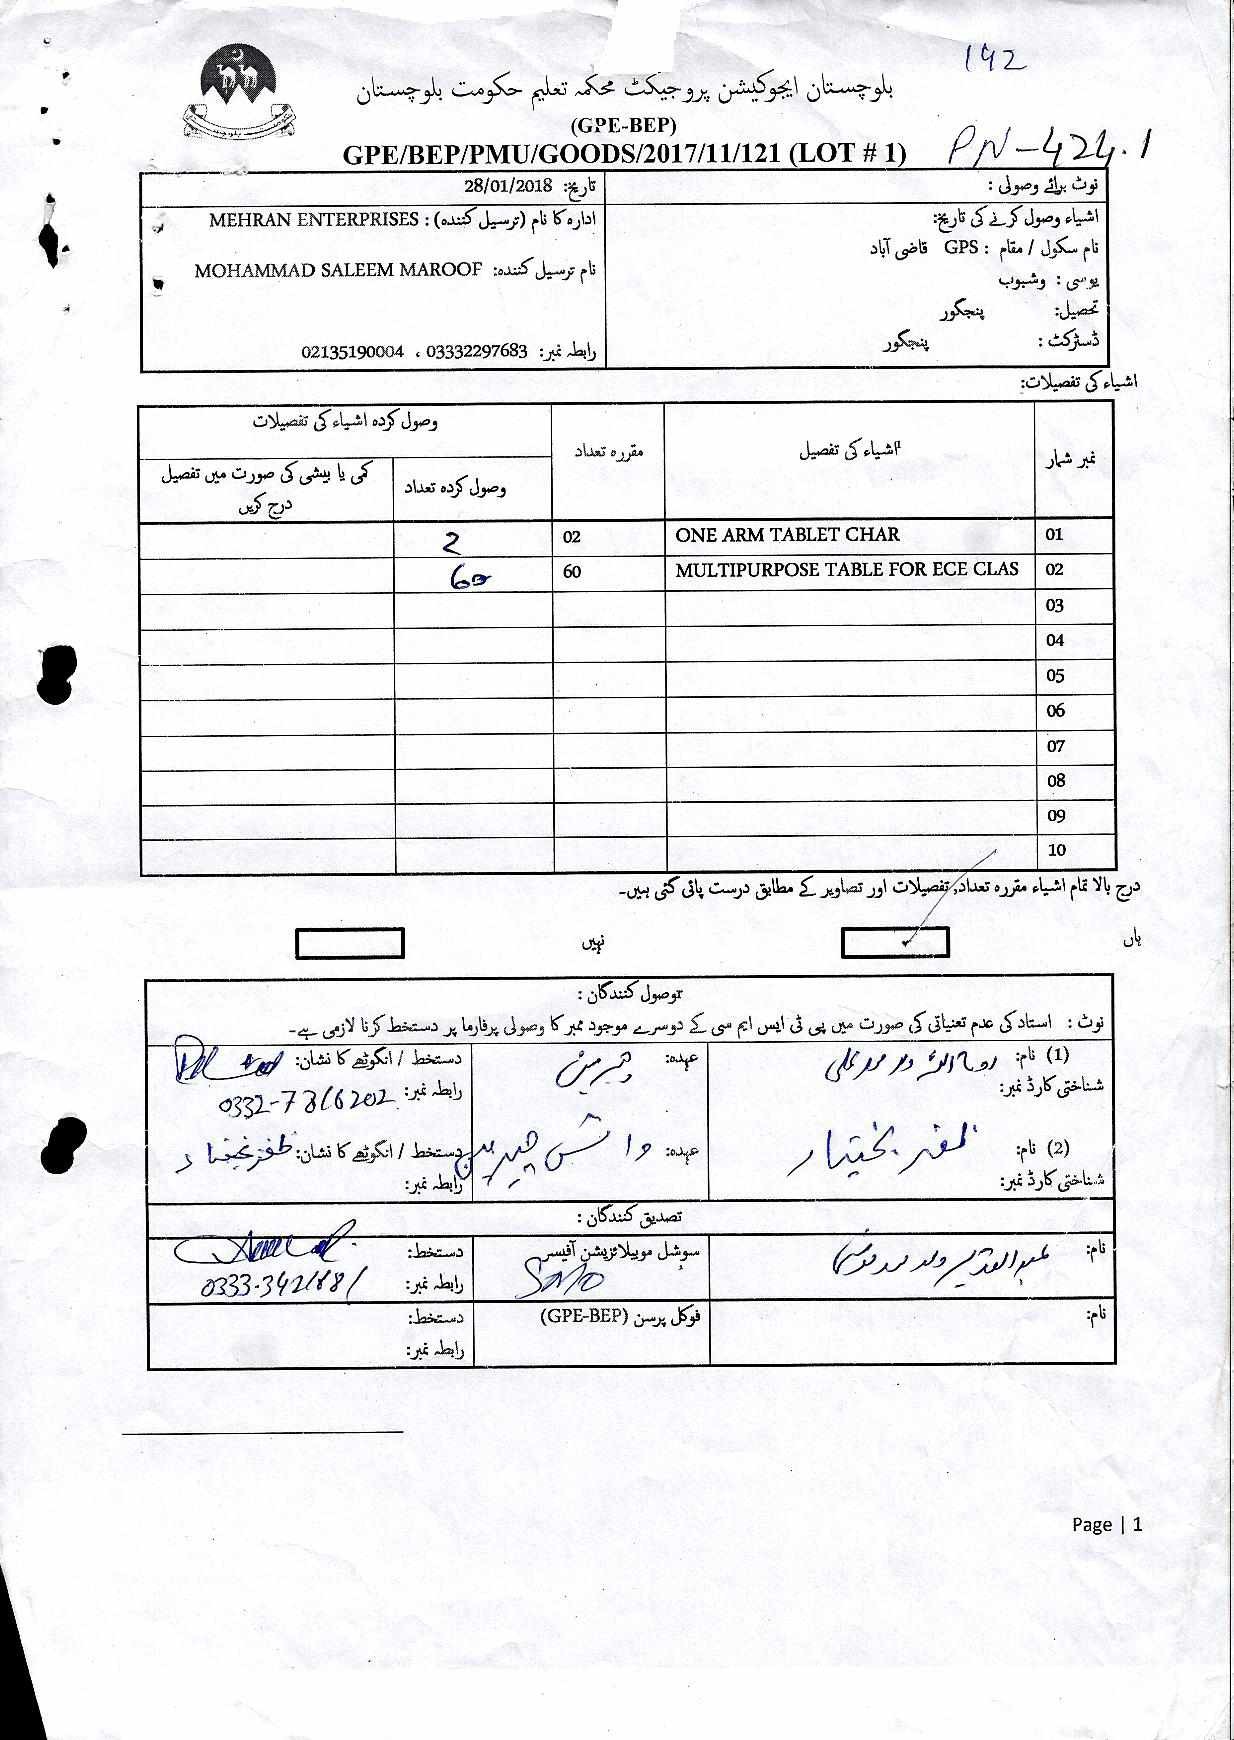 192
بلوچستان ایجوکیشن پروجیکٹ محکمہ تعلیم حکومت بلوچستان
(GPE-BEP)
GPE/BEP/PMU/GOODS/2017/11/121 (LOT # 1)
PN-424.1
نوٹ برائے وصولی :
تاریخ: 28/01/2018
اشیاء وصول کرنے کی تاریخ:
ادارہ کا نام (ترسیل کنندہ) : MEHRAN ENTERPRISES
نام سکول / مقام : GPS قاضی آباد
نام ترسیل کنندہ: MOHAMMAD SALEEM MAROOF
یوسی : وشبوب
تحصیل: پنجگور
ڈسٹرکٹ : پنجگور
رابطہ نمبر: 03332297683 ، 02135190004
اشیاء کی تفصیلات:
نمبر شمار
اشیاء کی تفصیل
مقررہ تعداد
وصول کردہ اشیاء کی تفصیلات
وصول کردہ تعداد
کمی یا بیشی کی صورت میں تفصیل درج کریں
01 ONE ARM TABLET CHAR 02 2
02 MULTIPURPOSE TABLE FOR ECE CLAS 60 60
03
04
05
06
07
08
09
10
درج بالا تمام اشیاء مقررہ تعداد, تفصیلات اور تصاویر کے مطابق درست پائی گئی ہیں۔
ہاں ✓ نہیں
وصول کنندگان :
نوٹ : استاد کی عدم تعیناتی کی صورت میں پی ٹی ایس ایم سی کے دوسرے موجود ممبر کا وصولی پرفارما پر دستخط کرنا لازمی ہے۔
(1) نام: عہدہ: چیرمین دستخط / انگوٹھے کا نشان:
شناختی کارڈ نمبر: رابطہ نمبر: 0332-7816202
(2) نام: ظفر بختیار عہدہ: وائس چیرمین دستخط / انگوٹھے کا نشان: ظفر بختیار
شناختی کارڈ نمبر: رابطہ نمبر:
تصدیق کنندگان :
نام: عبدالقدیر ولد سوشل موبیلائزیشن آفیسر دستخط:
SMO رابطہ نمبر: 0333-3421881
نام: فوکل پرسن (GPE-BEP) دستخط:
رابطہ نمبر:
Page | 1